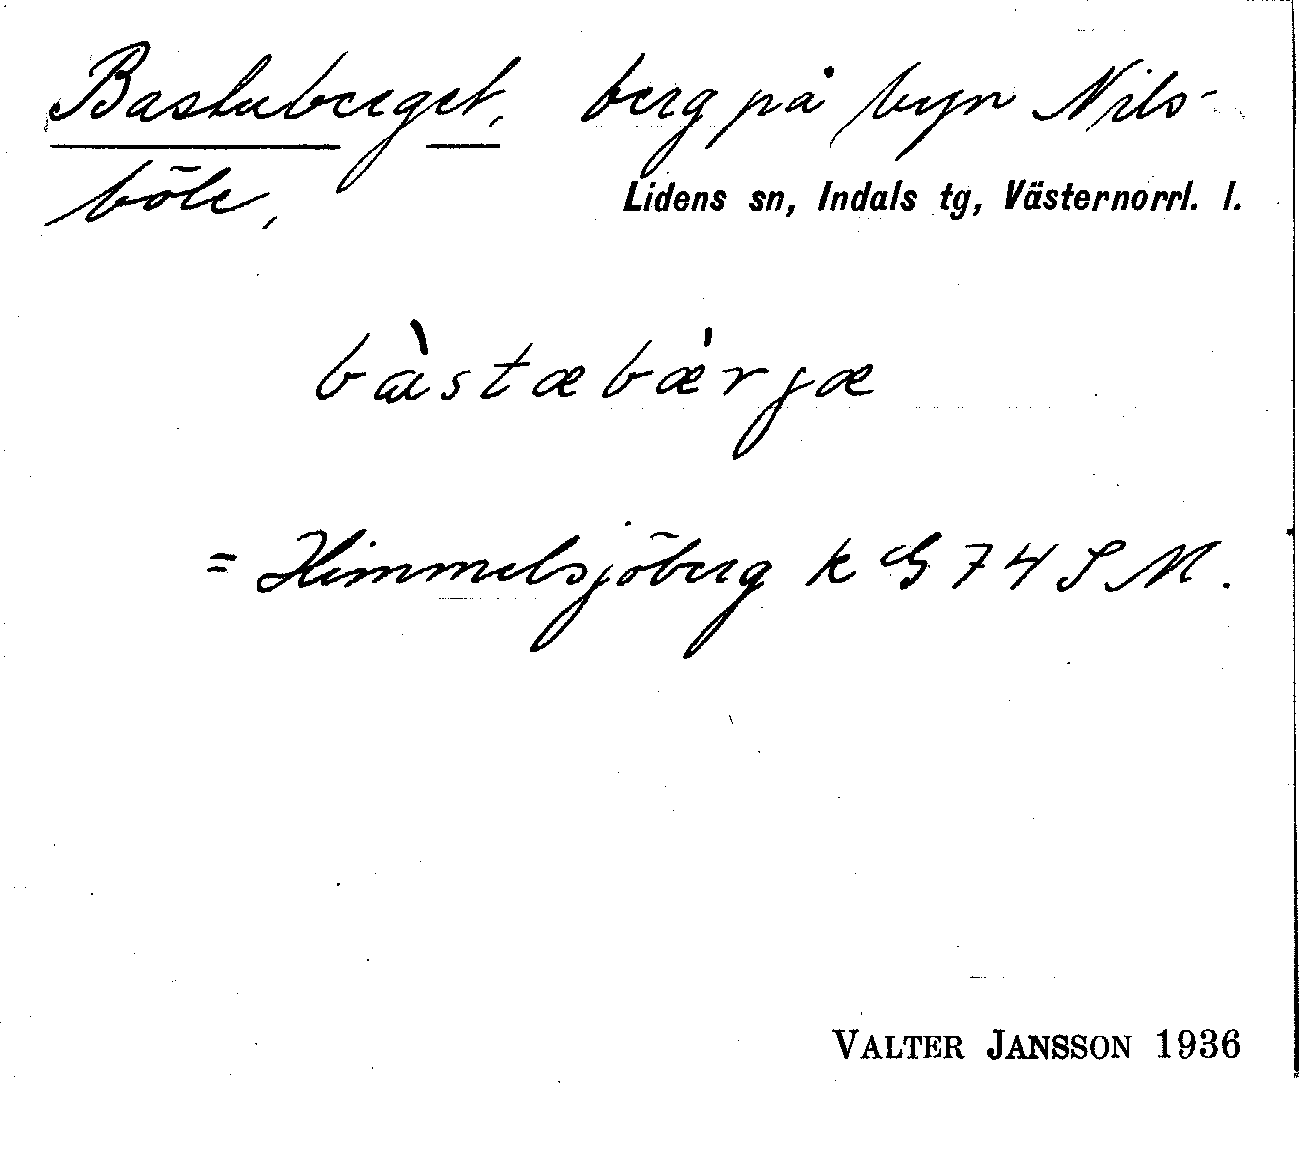 Bastuberget, berg på byn Nils-
böle,
Lidens sn, Indals tg, Västernorrl. l.
bàstæbæ̀rjæ
= Himmelsjöberg k G 74 S M.
VALTER JANSSON 1936